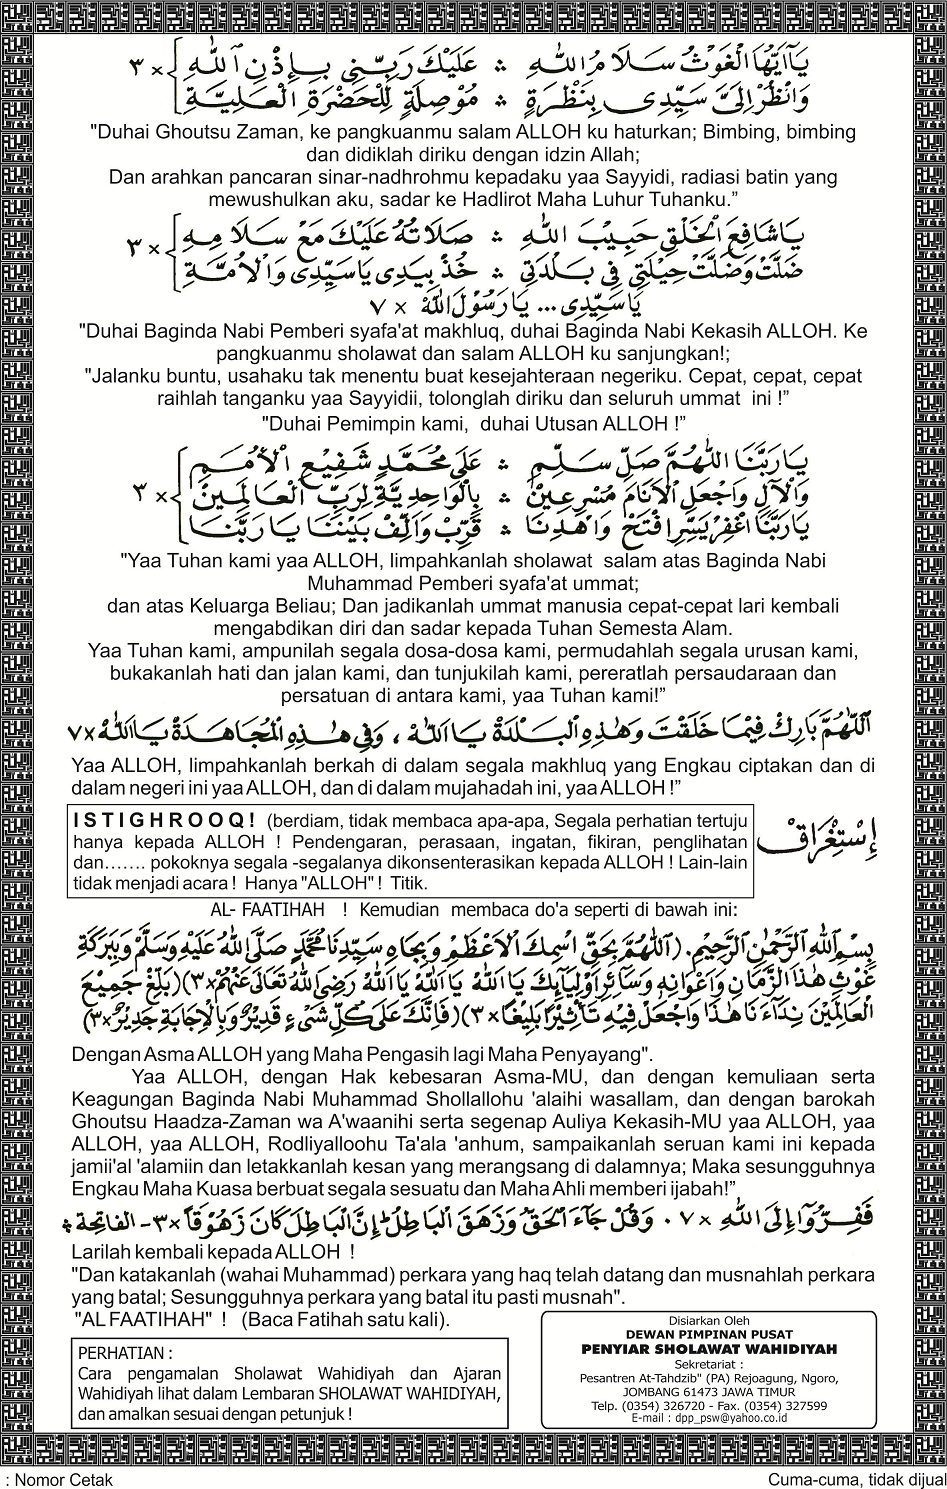 يَاۤاَيُّهَا الْغَوْثُ سَلَامُ اللّٰهِ ۞ عَلَيْكَ رَبِّنِي بِاِذْنِ اللّٰهِ ٣×
وَانْظُرْ اِلَيَّ سَيِّدِى بِنَظْرَةٍ ۞ مُوْصِلَةٍ لِلْحَضْرَةِ الْعَلِيَّةِ
"Duhai Ghoutsu Zaman, ke pangkuanmu salam ALLOH ku haturkan; Bimbing, bimbing
dan didiklah diriku dengan idzin Allah;
Dan arahkan pancaran sinar-nadhrohmu kepadaku yaa Sayyidi, radiasi batin yang
mewushulkan aku, sadar ke Hadlirot Maha Luhur Tuhanku.”
يَاشَافِعَ الْخَلْقِ حَبِيْبَ اللّٰهِ ۞ صَلَاتُهُ عَلَيْكَ مَعْ سَلَامِهِ ٣×
ضَلَّتْ وَضَلَّتْ حِيْلَتِي فِي بَلْدَتِي ۞ خُذْ بِيَدِي يَاسَيِّدِى وَالْاُمَّةِ
يَاسَيِّدِى ... يَارَسُوْلَ اللّٰهْ × ٧
"Duhai Baginda Nabi Pemberi syafa'at makhluq, duhai Baginda Nabi Kekasih ALLOH. Ke
pangkuanmu sholawat dan salam ALLOH ku sanjungkan!;
"Jalanku buntu, usahaku tak menentu buat kesejahteraan negeriku. Cepat, cepat, cepat
raihlah tanganku yaa Sayyidii, tolonglah diriku dan seluruh ummat ini !”
"Duhai Pemimpin kami, duhai Utusan ALLOH !”
يَارَبَّنَا اللّٰهُمَّ صَلِّ سَلِّمِ ۞ عَلَى مُحَمَّدٍ شَفِيْعِ الْاُمَمِ
وَالْآلِ وَاجْعَلِ الْاَنَامَ مُسْرِعِيْنْ ۞ بِالْوَاحِدِيَّةِ لِرَبِّ الْعَالَمِيْنْ ٣×
يَارَبَّنَا اغْفِرْ يَسِّرِ افْتَحْ وَاهْدِنَا ۞ قَرِّبْ وَاَلِّفْ بَيْنَنَا يَارَبَّنَا
"Yaa Tuhan kami yaa ALLOH, limpahkanlah sholawat salam atas Baginda Nabi
Muhammad Pemberi syafa'at ummat;
dan atas Keluarga Beliau; Dan jadikanlah ummat manusia cepat-cepat lari kembali
mengabdikan diri dan sadar kepada Tuhan Semesta Alam.
Yaa Tuhan kami, ampunilah segala dosa-dosa kami, permudahlah segala urusan kami,
bukakanlah hati dan jalan kami, dan tunjukilah kami, pereratlah persaudaraan dan
persatuan di antara kami, yaa Tuhan kami!”
اَللّٰهُمَّ بَارِكْ فِيْمَا خَلَقْتَ وَهٰذِهِ الْبَلْدَةْ يَااَللّٰهْ ، وَفِي هٰذِهِ الْمُجَاهَدَةْ يَااَللّٰهْ ×٧
Yaa ALLOH, limpahkanlah berkah di dalam segala makhluq yang Engkau ciptakan dan di
dalam negeri ini yaa ALLOH, dan di dalam mujahadah ini, yaa ALLOH !”
ISTIGHROOQ! (berdiam, tidak membaca apa-apa, Segala perhatian tertuju
hanya kepada ALLOH ! Pendengaran, perasaan, ingatan, fikiran, penglihatan
dan……. pokoknya segala -segalanya dikonsenterasikan kepada ALLOH ! Lain-lain
tidak menjadi acara ! Hanya "ALLOH" ! Titik.
اِسْتِغْرَاقْ
AL- FAATIHAH ! Kemudian membaca do'a seperti di bawah ini:
بِسْمِ اللّٰهِ الرَّحْمٰنِ الرَّحِيْمِ. (اَللّٰهُمَّ بِحَقِّ اسْمِكَ الْاَعْظَمِ وَبِجَاهِ سَيِّدِنَا مُحَمَّدٍ صَلَّى اللّٰهُ عَلَيْهِ وَسَلَّمَ وَبِبَرَكَةِ
غَوْثِ هٰذَا الزَّمَانِ وَاَعْوَانِهِ وَسَائِرِ اَوْلِيَآئِكَ يَااَللّٰهُ يَااَللّٰهُ يَااَللّٰهُ رَضِيَ اللّٰهُ تَعَالَى عَنْهُمْ×٣) (بَلِّغْ جَمِيْعَ
الْعَالَمِيْنَ نِدَآءَنَا هٰذَا وَاجْعَلْ فِيْهِ تَأْثِيْرًا بَلِيْغًا×٣) (فَاِنَّكَ عَلَى كُلِّ شَيْءٍ قَدِيْرٌ وَبِالْاِجَابَةِ جَدِيْرٌ×٣)
Dengan Asma ALLOH yang Maha Pengasih lagi Maha Penyayang".
Yaa ALLOH, dengan Hak kebesaran Asma-MU, dan dengan kemuliaan serta
Keagungan Baginda Nabi Muhammad Shollallohu 'alaihi wasallam, dan dengan barokah
Ghoutsu Haadza-Zaman wa A'waanihi serta segenap Auliya Kekasih-MU yaa ALLOH, yaa
ALLOH, yaa ALLOH, Rodliyalloohu Ta'ala 'anhum, sampaikanlah seruan kami ini kepada
jamii'al 'alamiin dan letakkanlah kesan yang merangsang di dalamnya; Maka sesungguhnya
Engkau Maha Kuasa berbuat segala sesuatu dan Maha Ahli memberi ijabah!”
فَفِرُّوْا اِلَى اللّٰهِ ×٧. وَقُلْ جَآءَ الْحَقُّ وَزَهَقَ الْبَاطِلُ اِنَّ الْبَاطِلَ كَانَ زَهُوْقًا×٣- الفَاتِحَة ۞
Larilah kembali kepada ALLOH !
"Dan katakanlah (wahai Muhammad) perkara yang haq telah datang dan musnahlah perkara
yang batal; Sesungguhnya perkara yang batal itu pasti musnah".
"AL FAATIHAH" ! (Baca Fatihah satu kali).
PERHATIAN :
Cara pengamalan Sholawat Wahidiyah dan Ajaran
Wahidiyah lihat dalam Lembaran SHOLAWAT WAHIDIYAH,
dan amalkan sesuai dengan petunjuk !
Disiarkan Oleh
DEWAN PIMPINAN PUSAT
PENYIAR SHOLAWAT WAHIDIYAH
Sekretariat :
Pesantren At-Tahdzib" (PA) Rejoagung, Ngoro,
JOMBANG 61473 JAWA TIMUR
Telp. (0354) 326720 - Fax. (0354) 327599
E-mail : dpp_psw@yahoo.co.id
: Nomor Cetak
Cuma-cuma, tidak dijual